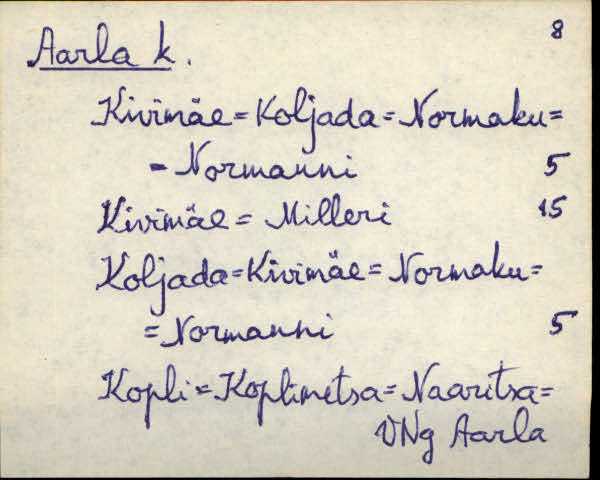 8
Aarla k.
Kivimäe = Koljada = Normaku =
= Normanni 5
Kivimäe = Milleri 15
Koljada = Kivimäe = Normaku =
= Normanni 5
Kopli = Koplimetsa = Naaritsa =
VNg Aarla